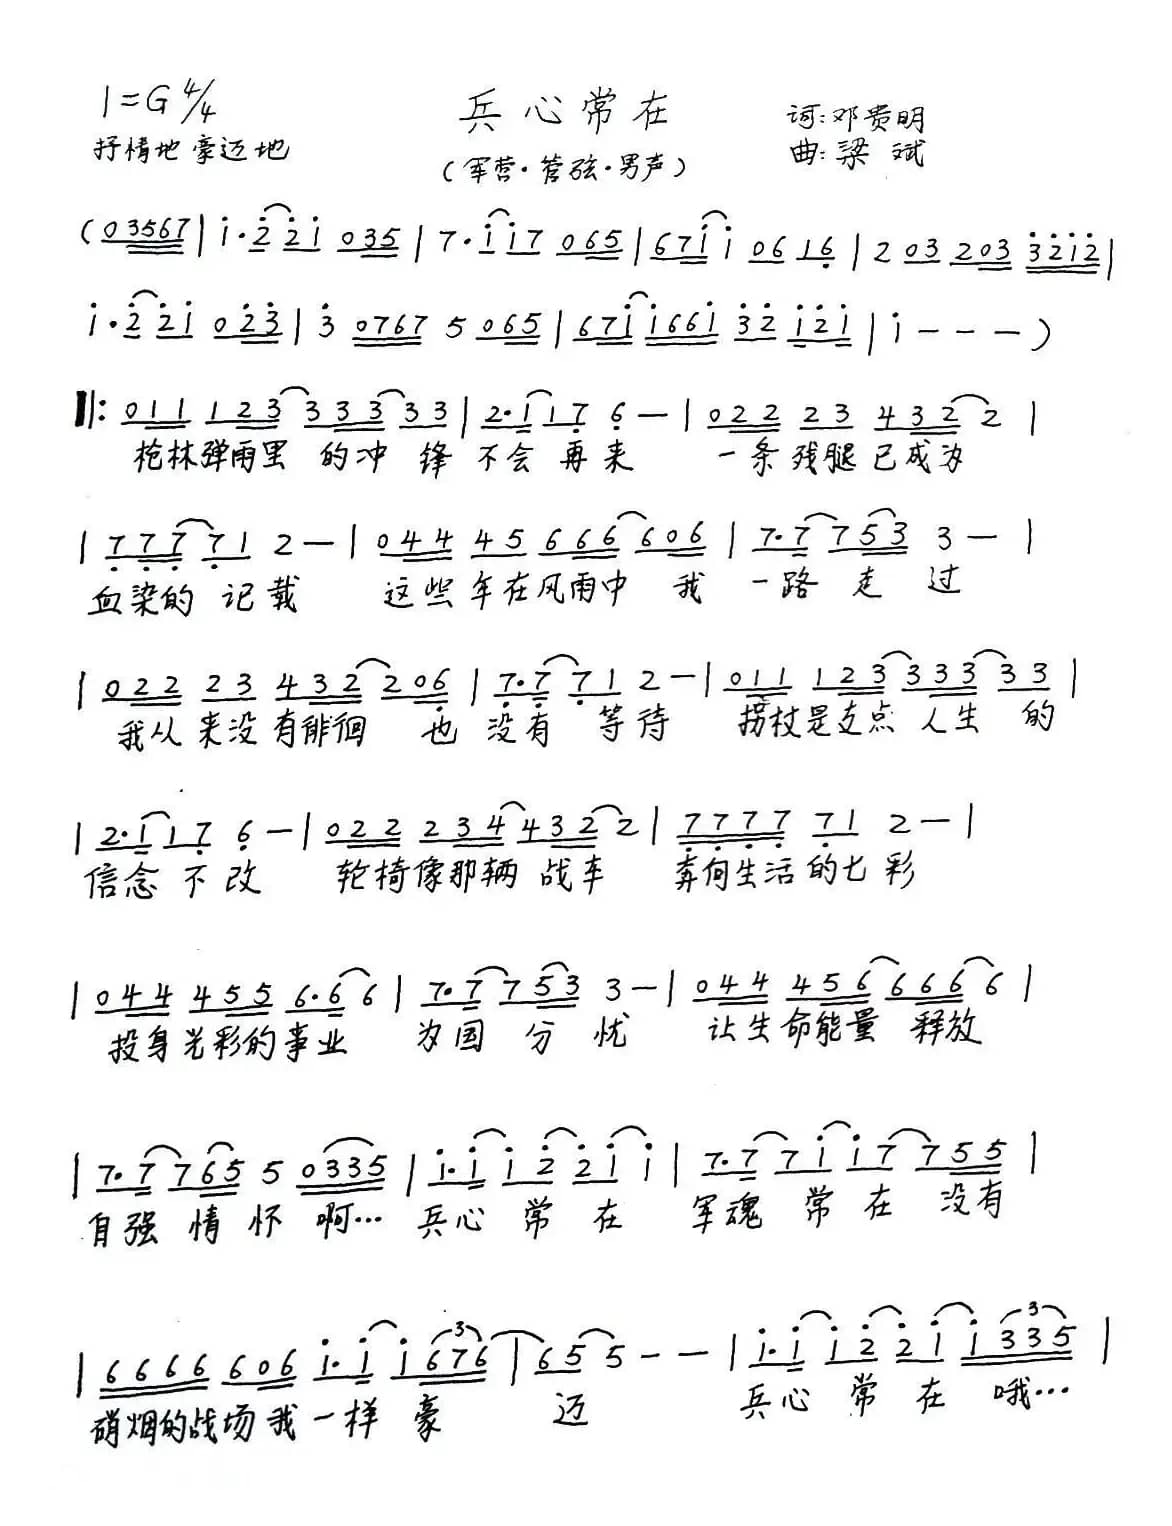 1=G 4/4
兵心常在
词:邓贵明
抒情地 豪迈地
(军营·管弦·男声)
曲:梁斌
(03567|i·2 2i 035|7·i i7 065|67i i 06 16|2 03 203 3212|
i·2 2i 023|3 0767 5 065|67i i66i 32 i2i|i - - - )
‖: 011 123 333 33|2·1 17 6 -|022 23 432 2|
枪林弹雨里 的冲 锋 不会 再来 一条残腿已成为
|777 71 2 -|044 45 666 606|7·7 753 3 -|
血染的 记载 这些年在风雨中 我 一路 走 过
|022 23 432 206|7·7 71 2 -|011 123 333 33|
我从来没有徘徊 也 没有 等待 拐杖是支点人生 的
|2·1 17 6 -|022 234 432 2|7777 71 2 -|
信念 不改 轮椅像那辆 战车 奔向生活的七彩
|044 455 6·6 6|7·7 753 3 -|044 456 666 6|
投身光彩的事业 为国 分 忧 让生命能量 释放
|7·7 765 5 0335|i·i i2 2i i|7·7 7i i7 755|
自强 情 怀 啊… 兵心 常 在 军魂 常 在 没有
|6666 606 i·i i676|65 5 - -|i·i i2 2i i335|
硝烟的战场我一样 豪 迈 兵心 常 在 哦…